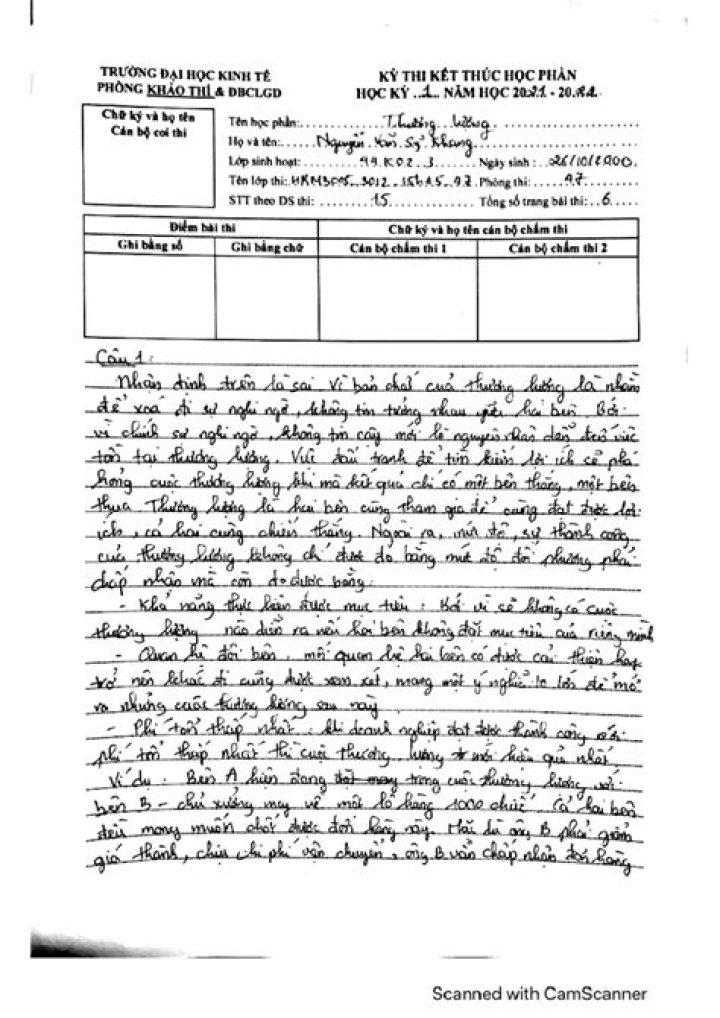 TRƯỜNG ĐẠI HỌC KINH TẾ
PHÒNG KHẢO THÍ & ĐBCLGD
KỲ THI KẾT THÚC HỌC PHẦN
HỌC KỲ ..1.. NĂM HỌC 2021 - 2022
Chữ ký và họ tên
Cán bộ coi thi
Tên học phần: Thương lượng
Họ và tên: Nguyễn Văn Sỹ Khang
Lớp sinh hoạt: 44K02.3 Ngày sinh: 26/10/2000
Tên lớp thi: Phòng thi: A7
STT theo DS thi: 15 Tổng số trang bài thi: 6
Điểm bài thi
Chữ ký và họ tên cán bộ chấm thi
Ghi bằng số
Ghi bằng chữ
Cán bộ chấm thi 1
Cán bộ chấm thi 2
Câu 1:
Nhận định trên là sai. Vì bản chất của thương lượng là nhằm
để xoá đi sự nghi ngờ, không tin tưởng nhau giữa hai bên. Bởi
vì chính sự nghi ngờ, không tin cậy mới là nguyên nhân dẫn tới việc
tồn tại thương lượng. Việc đấu tranh để tìm kiếm lợi ích sẽ phá
hỏng cuộc thương lượng khi mà kết quả chỉ có một bên thắng, một bên
thua. Thương lượng là hai bên cùng tham gia để cùng đạt được lợi
ích, cả hai cùng chiến thắng. Ngoài ra, sự thành công
của thương lượng không chỉ được đo bằng mức độ đối phương phải
chấp nhận mà còn đo được bằng:
- Khả năng thực hiện được mục tiêu: Bởi vì sẽ không có cuộc
thương lượng nào diễn ra nếu hai bên không đặt mục tiêu của riêng mình
- Quan hệ đôi bên, mối quan hệ hai bên có được cải thiện hay
trở nên khác đi cũng được xem xét, mang một ý nghĩa to lớn để mở
ra những cuộc thương lượng sau này
- Phí tổn thấp nhất: khi doanh nghiệp đạt được thành công với
phí tổn thấp nhất thì cuộc thương lượng mới hiệu quả nhất.
Ví dụ: Bên A hiện đang trong cuộc thương lượng với
bên B - chủ xưởng may về một lô hàng 1000 chiếc. Cả hai bên
đều mong muốn chốt được đơn hàng này. Mặc dù ông B phải giảm
giá thành, chịu chi phí vận chuyển, ông B vẫn chấp nhận đơn hàng
Scanned with CamScanner